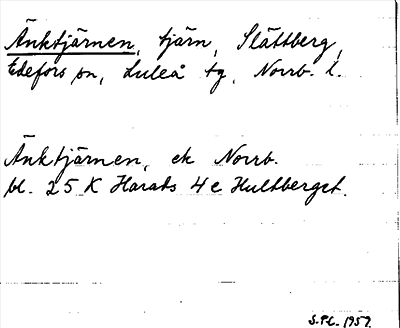 Änktjärnen, tjärn, Slättberg,
Edefors sn, Luleå tg, Norrb. l.
Änktjärnen, ek Norrb.
bl. 25 K Harads 4 e Hultberget.
1959.